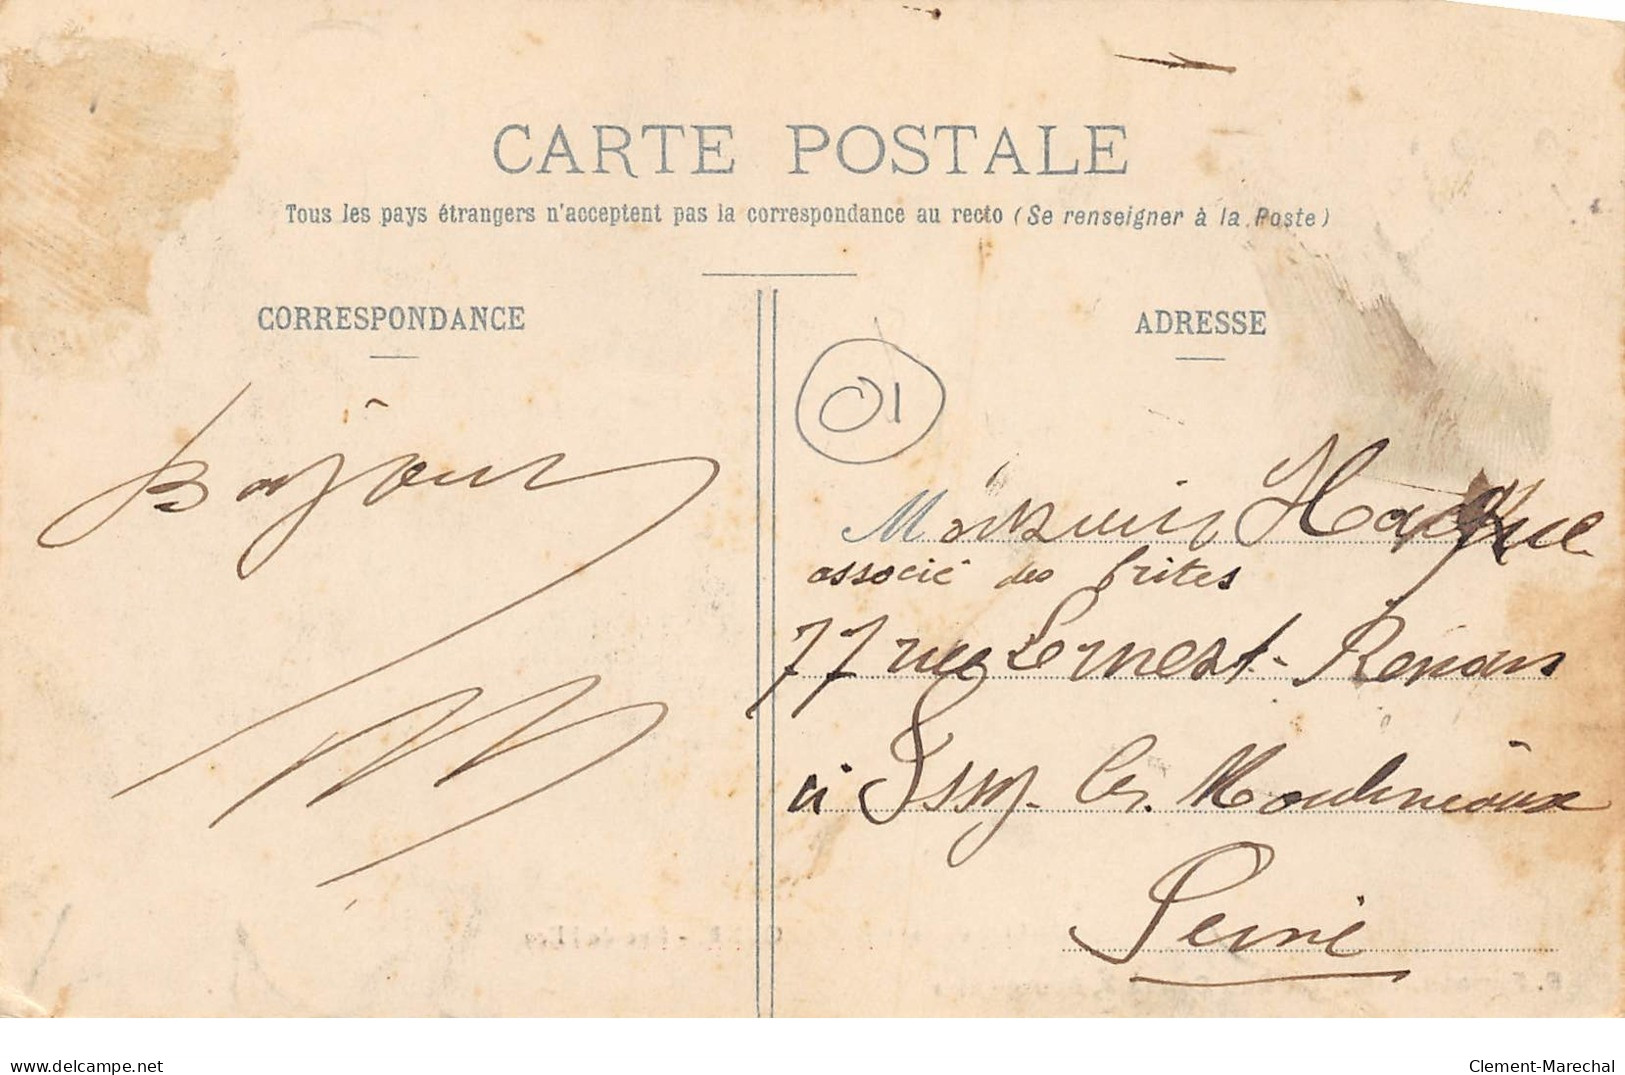 CARTE POSTALE
Tous les pays étrangers n'acceptent pas la correspondance au recto (Se renseigner à la Poste)
CORRESPONDANCE
ADRESSE
01
Bonjour
Monsieur Hacque
associé des frites
77 rue Ernest-Renan
à Issy-les-Moulineaux
Seine
delcampe.net
Clement-Marechal